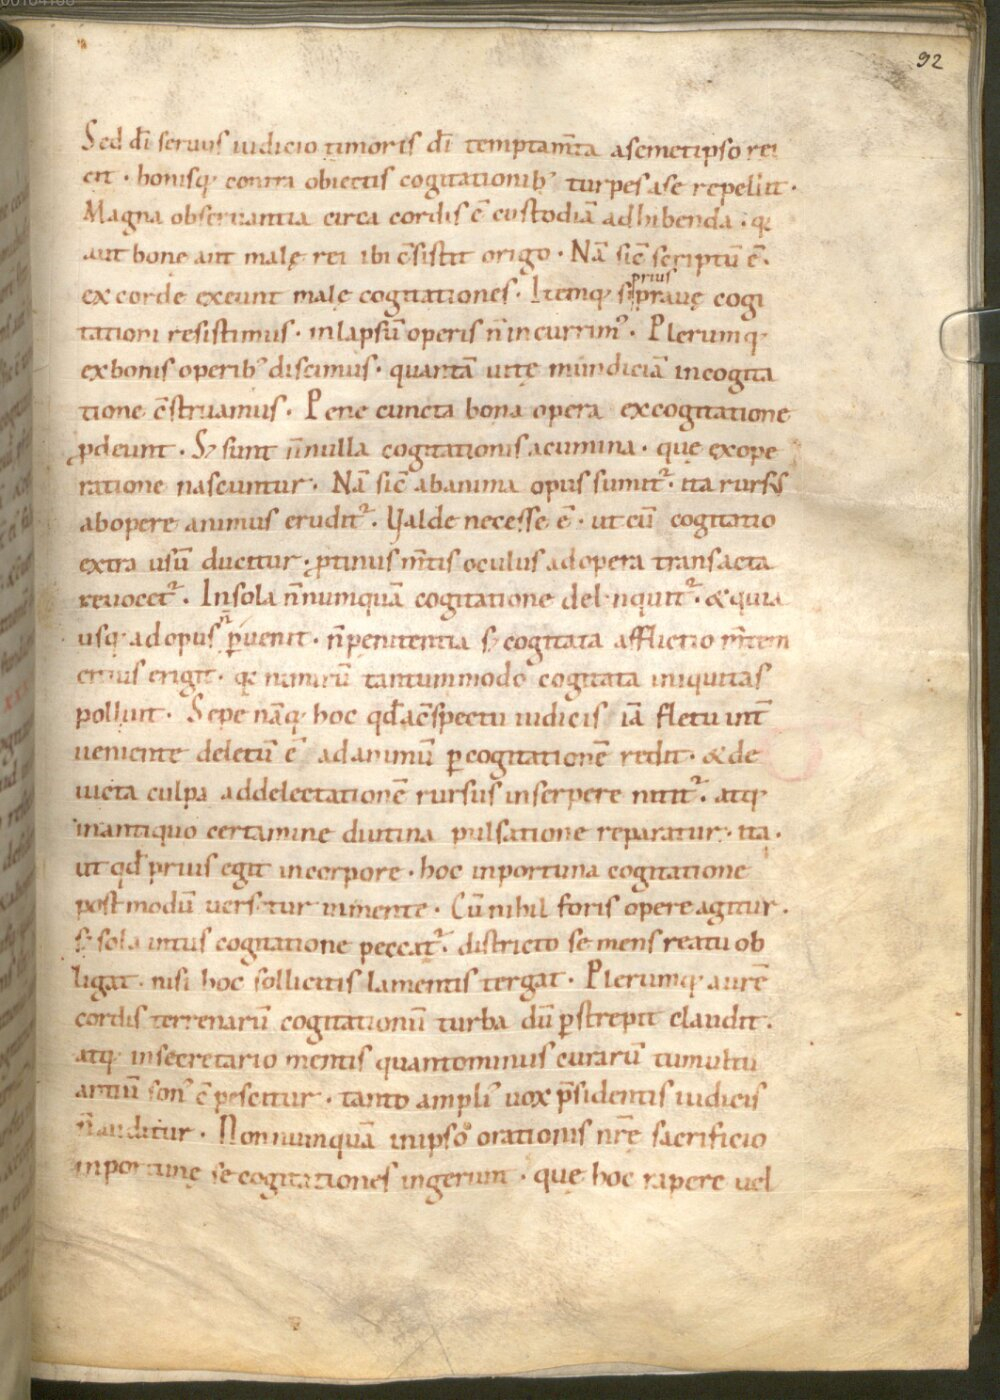 92
Sed dī seruus iudicio timoris dī temptam̄ta asemetipso rei
cit · bonisq; contra obiectis cogitationib; turpes ase repellit ·
Magna obseruantia circa cordis ē custodiā adhibenda · q̄
aut bone aut malę rei ibi c̄sistit origo · Nā sic̄ scriptū ē ·
ex corde exeunt malę cogitationes · Itemq; si prauę cogi
prius
tationi resistimus · inlapsū operis n̄ incurrim᾽ · Plerumq;
exbonis operib᾽ discimus · quantā uitę mundiciā incogita
tione c̄struamus · Pene cuncta bona opera excogitatione
ꝓdeunt · Sꝫ sunt n̄nulla cogitationis acumina · que exope
ratione nascuntur · Nā sic̄ abanima opus sumit᷑ · ita rursus
abopere animus erudit᷑ · Ualde necesse ē · ut cū cogitatio
extra usū ducitur · ꝓtinus m̄tis oculus adopera transacta
reuocet᷑ · Insola n̄numquā cogitatione delinquit᷑ · & quia
usq; adopus n̄ ꝑuenit · n̄ penitentia sꝫ cogitata afflictio m̄tem
citius erigit · q̄ nimirū tantummodo cogitata iniquitas
polluit · Sepe nāq; hoc qđ ac̄spectu iudicis iā fletu int̄
ueniente deletū ē adanimū ꝑcogitationē redit · & de
uicta culpa addelectationē rursus inserpere nitit᷑ · atq;
inantiquo certamine diutina pulsatione reparatur · ita ·
ut qđ prius egit incorpore · hoc inportuna cogitatione
postmodū uersetur inmente · Cū nihil foris opere agitur ·
sꝫ sola intus cogitatione peccat᷑ · districto se mens reatu ob
ligat · nisi hoc sollicitis lamentis tergat · Plerumq; aurē
cordis terrenarū cogitationū turba dū ꝑstrepit claudit ·
atq; insecretario mentis quantominus curarū tumultu
antiū son᾽ c̄pescitur · tanto ampli᾽ uox p̄sidentis iudicis
n̄ auditur · Nonnumquā inipso orationis nr̄ę sacrificio
inportunę se cogitationes ingerunt · quę hoc rapere uel